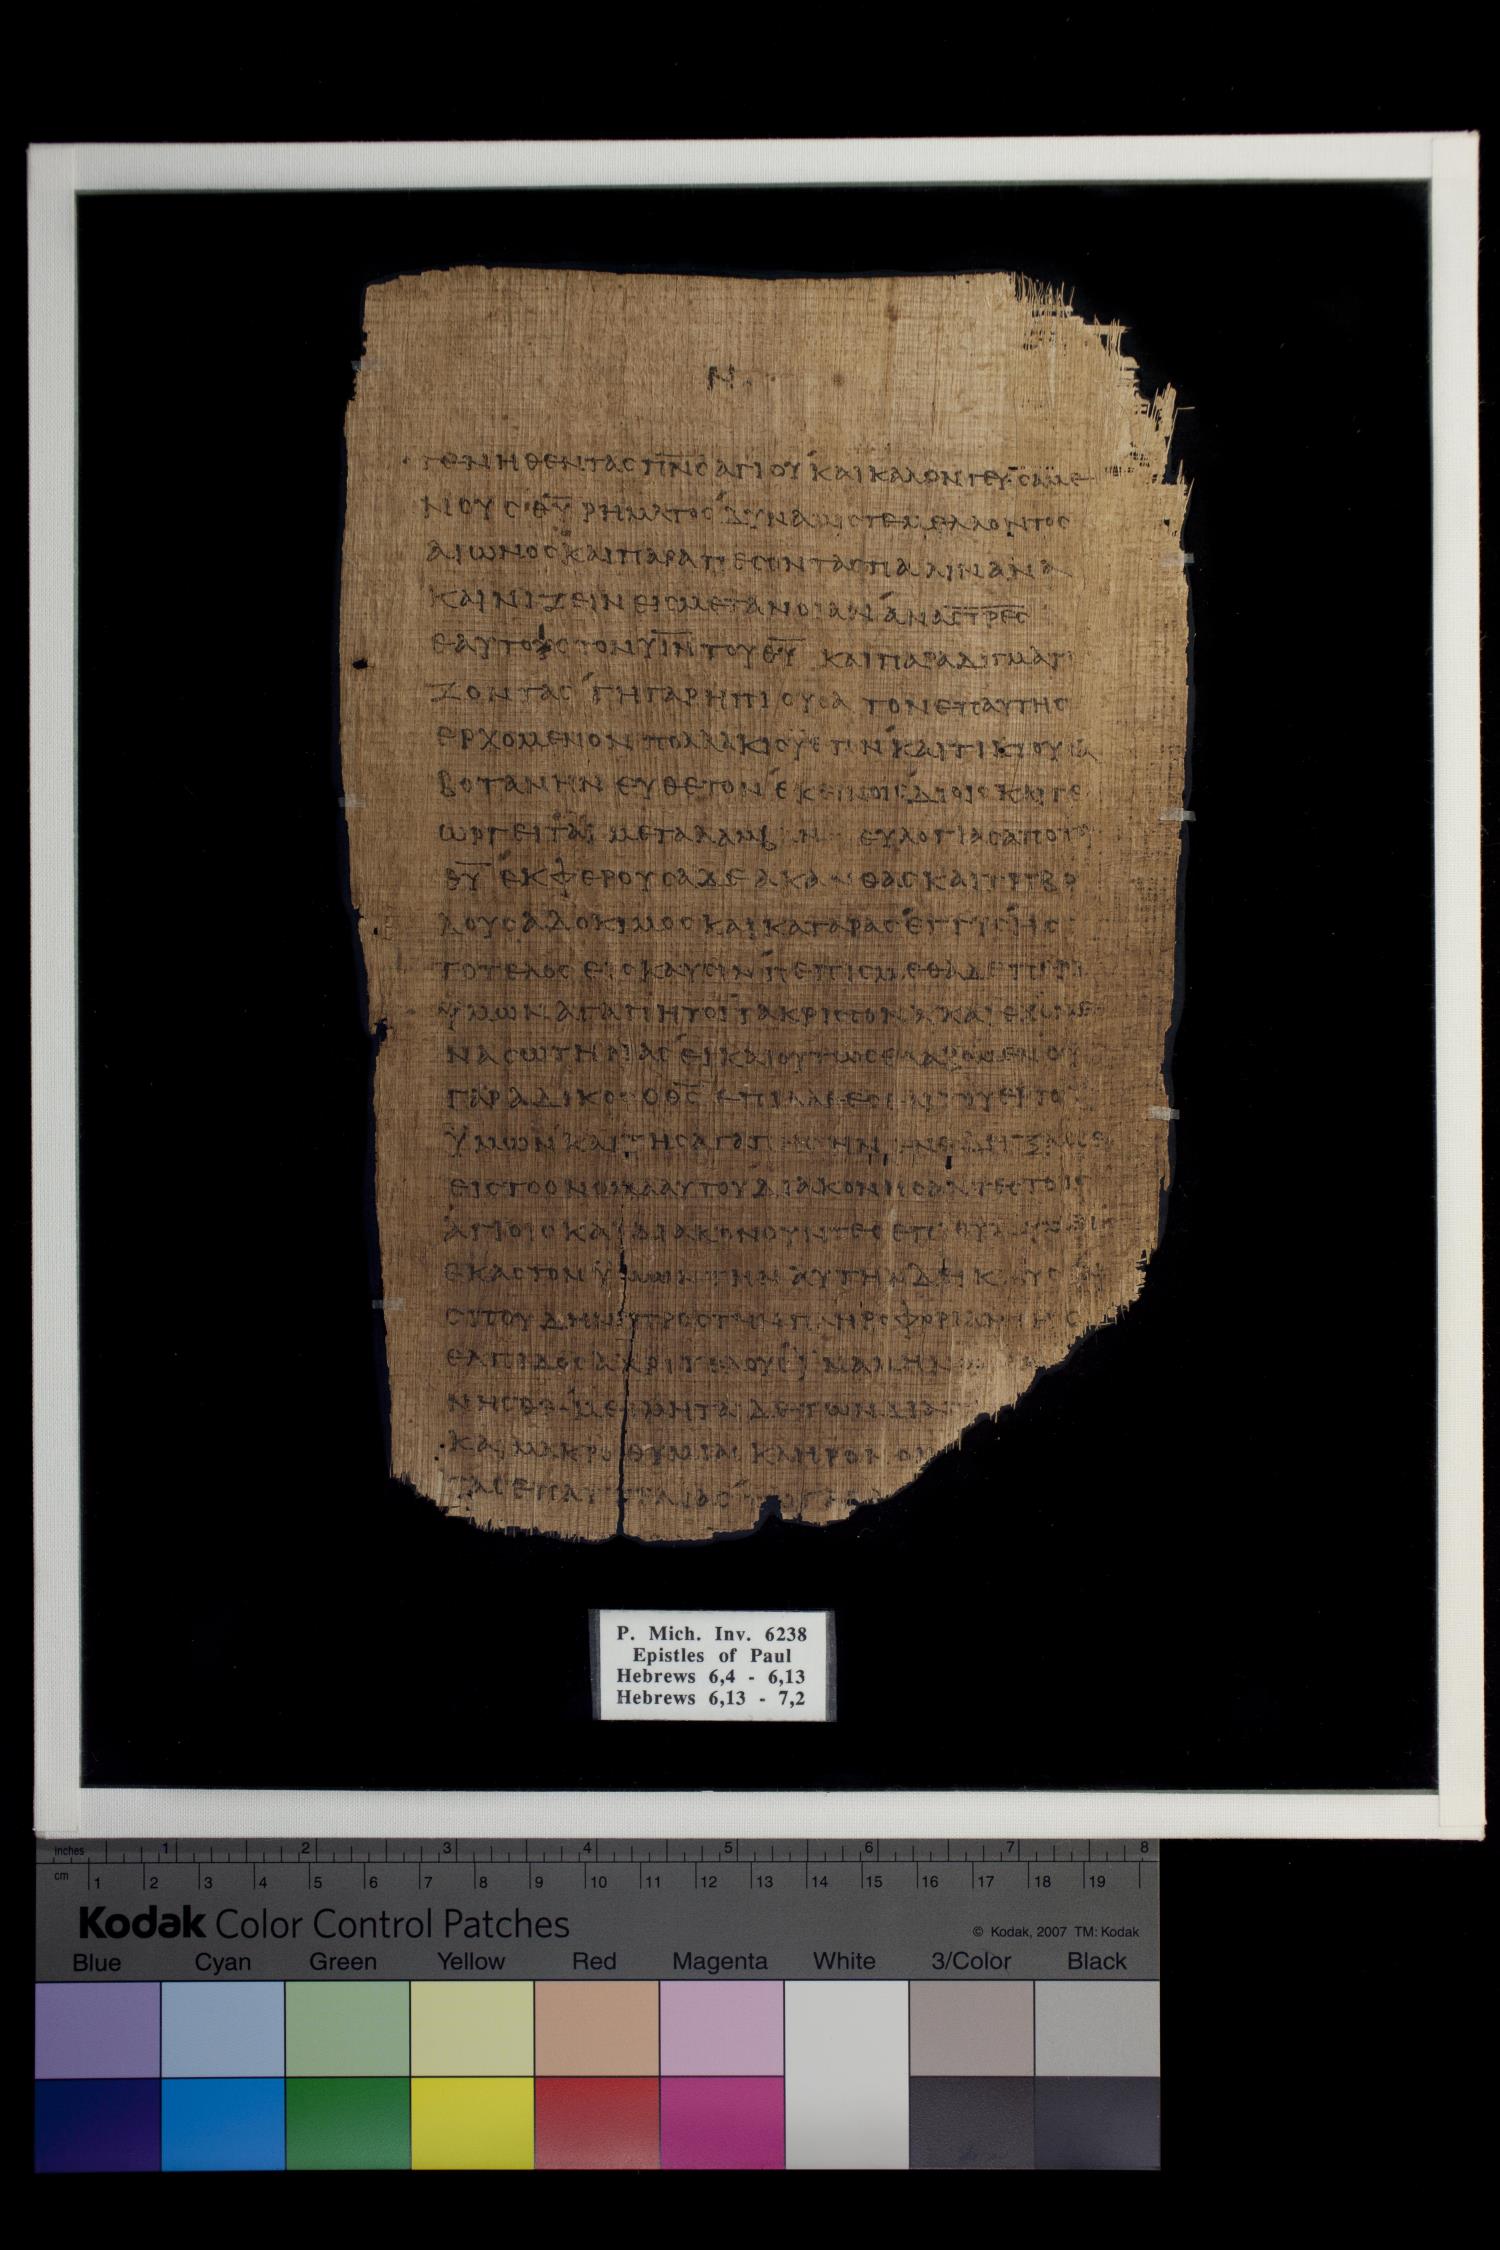 Ν
ΓΕΝΗΘΕΝΤΑΣ ΠΝΣ ΑΓΙΟΥ ΚΑΙ ΚΑΛΟΝ ΓΕΥΣΑΜΕ
ΝΟΥΣ ΘΥ ΡΗΜΑΤΟΣ ΔΥΝΑΜΙΣ ΤΕ ΜΕΛΛΟΝΤΟΣ
ΑΙΩΝΟΣ ΚΑΙ ΠΑΡΑΠΕΣΟΝΤΑΣ ΠΑΛΙΝ ΑΝΑ
ΚΑΙΝΙΖΕΙΝ ΕΙΣ ΜΕΤΑΝΟΙΑΝ ΑΝΑΣΤΡΕΣ
ΕΑΥΤΟΙΣ ΤΟΝ ΥΙΝ ΤΟΥ ΘΥ ΚΑΙ ΠΑΡΑΔΙΓΜΑΤΙ
ΖΟΝΤΑΣ ΓΗ ΓΑΡ Η ΠΙΟΥΣΑ ΤΟΝ ΕΠ ΑΥΤΗΣ
ΕΡΧΟΜΕΝΟΝ ΠΟΛΛΑΚΙΣ ΥΕΤΟΝ ΚΑΙ ΤΙΚΤΟΥΣΑ
ΒΟΤΑΝΗΝ ΕΥΘΕΤΟΝ ΕΚΕΙΝΟΙΣ ΔΙ ΟΙΣ ΚΑΙ ΓΕ
ΩΡΓΕΙΤΑΙ ΕΥΛΟΓΙΑΣ ΑΠΟ ΤΟΥ
ΘΥ ΕΚΦΕΡΟΥΣΑ ΔΕ ΑΚΑΝΘΑΣ ΚΑΙ ΤΡΙΒΟ
ΛΟΥΣ ΑΔΟΚΙΜΟΣ ΚΑΙ ΚΑΤΑΡΑΣ ΕΓΓΥΣ ΗΣ
ΤΟ ΤΕΛΟΣ ΕΙΣ ΚΑΥΣΙΝ ΠΕΠΙΣΜΕΘΑ ΔΕ ΠΕΡΙ
ΥΜΩΝ ΑΓΑΠΗΤΟΙ ΤΑ ΚΡΙΣΣΟΝΑ ΚΑΙ ΕΧΟΜΕ
ΝΑ ΣΩΤΗΡΙΑΣ ΕΙ ΚΑΙ ΟΥΤΩΣ ΕΛΑΛΟΥΜΕΝ ΟΥ
ΓΑΡ ΑΔΙΚΟΣ Ο ΘΣ ΕΠΙΛΑΘΕΣΘΑΙ ΤΟΥ ΕΡΓΟΥ
ΥΜΩΝ ΚΑΙ ΤΗΣ ΑΓΑΠΗΣ ΗΝ ΕΝΕΔΙΞΑΣΘΕ
ΕΙΣ ΤΟ ΟΝΟΜΑ ΑΥΤΟΥ ΔΙΑΚΟΝΗΣΑΝΤΕΣ ΤΟΙΣ
ΑΓΙΟΙΣ ΚΑΙ ΔΙΑΚΟΝΟΥΝΤΕΣ
ΕΚΑΣΤΟΝ ΥΜΩΝ ΤΗΝ ΑΥΤΗΝ
ΣΠΟΥΔΗΝ ΠΡΟΣ ΤΗΝ ΠΛΗΡΟΦΟΡΙΑΝ ΤΗΣ
ΕΛΠΙΔΟΣ ΑΧΡΙ ΤΕΛΟΥΣ
ΜΕΙΜΗΤΑΙ ΔΕ ΤΩΝ ΔΙΑ
ΚΑΙ ΜΑΚΡΟΘΥΜΙΑΣ ΚΛΗΡΟΝΟΜ
ΤΑΣ ΕΠΑΓΓΕΛΙΑΣ
P. Mich. Inv. 6238
Epistles of Paul
Hebrews 6,4 - 6,13
Hebrews 6,13 - 7,2
inches 1 2 3 4 5 6 7 8
cm 1 2 3 4 5 6 7 8 9 10 11 12 13 14 15 16 17 18 19
Kodak Color Control Patches © Kodak, 2007 TM: Kodak
Blue Cyan Green Yellow Red Magenta White 3/Color Black